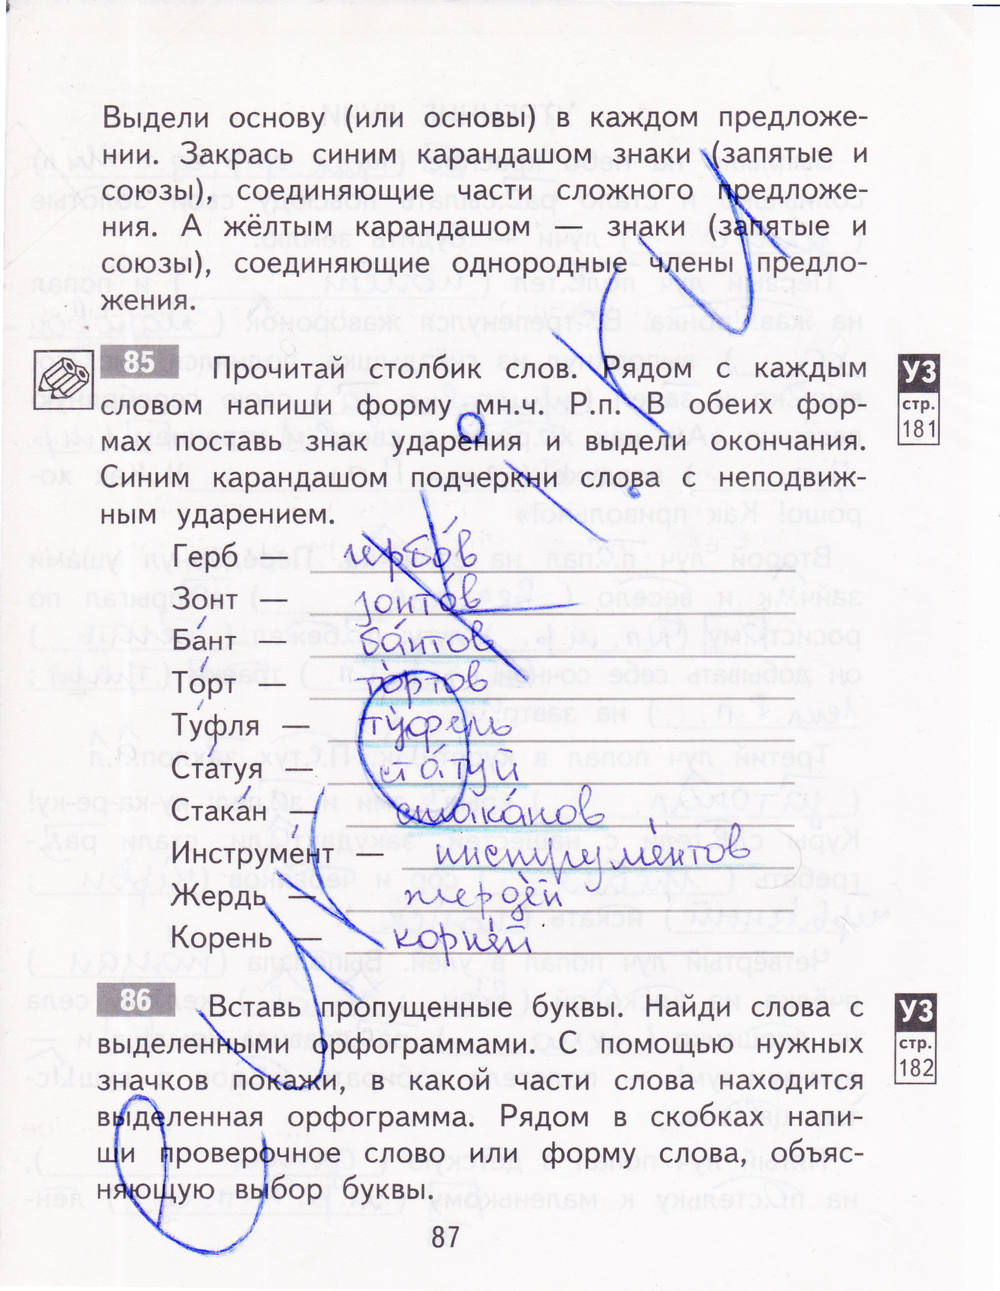 Выдели основу (или основы) в каждом предложе-
нии. Закрась синим карандашом знаки (запятые и
союзы), соединяющие части сложного предложе-
ния. А жёлтым карандашом — знаки (запятые и
союзы), соединяющие однородные члены предло-
жения.
85 Прочитай столбик слов. Рядом с каждым
словом напиши форму мн.ч. Р.п. В обеих фор-
мах поставь знак ударения и выдели окончания.
Синим карандашом подчеркни слова с неподвиж-
ным ударением.
УЗ
стр.
181
Герб — гербо́в
Зонт — зонто́в
Ба́нт — ба́нтов
То́рт — то́ртов
Ту́фля — ту́фель
Ста́туя — ста́туй
Стака́н — стака́нов
Инструме́нт — инструме́нтов
Жердь — жердей
Корень — корней
86 Вставь пропущенные буквы. Найди слова с
выделенными орфограммами. С помощью нужных
значков покажи, в какой части слова находится
выделенная орфограмма. Рядом в скобках напи-
ши проверочное слово или форму слова, объяс-
няющую выбор буквы.
УЗ
стр.
182
87